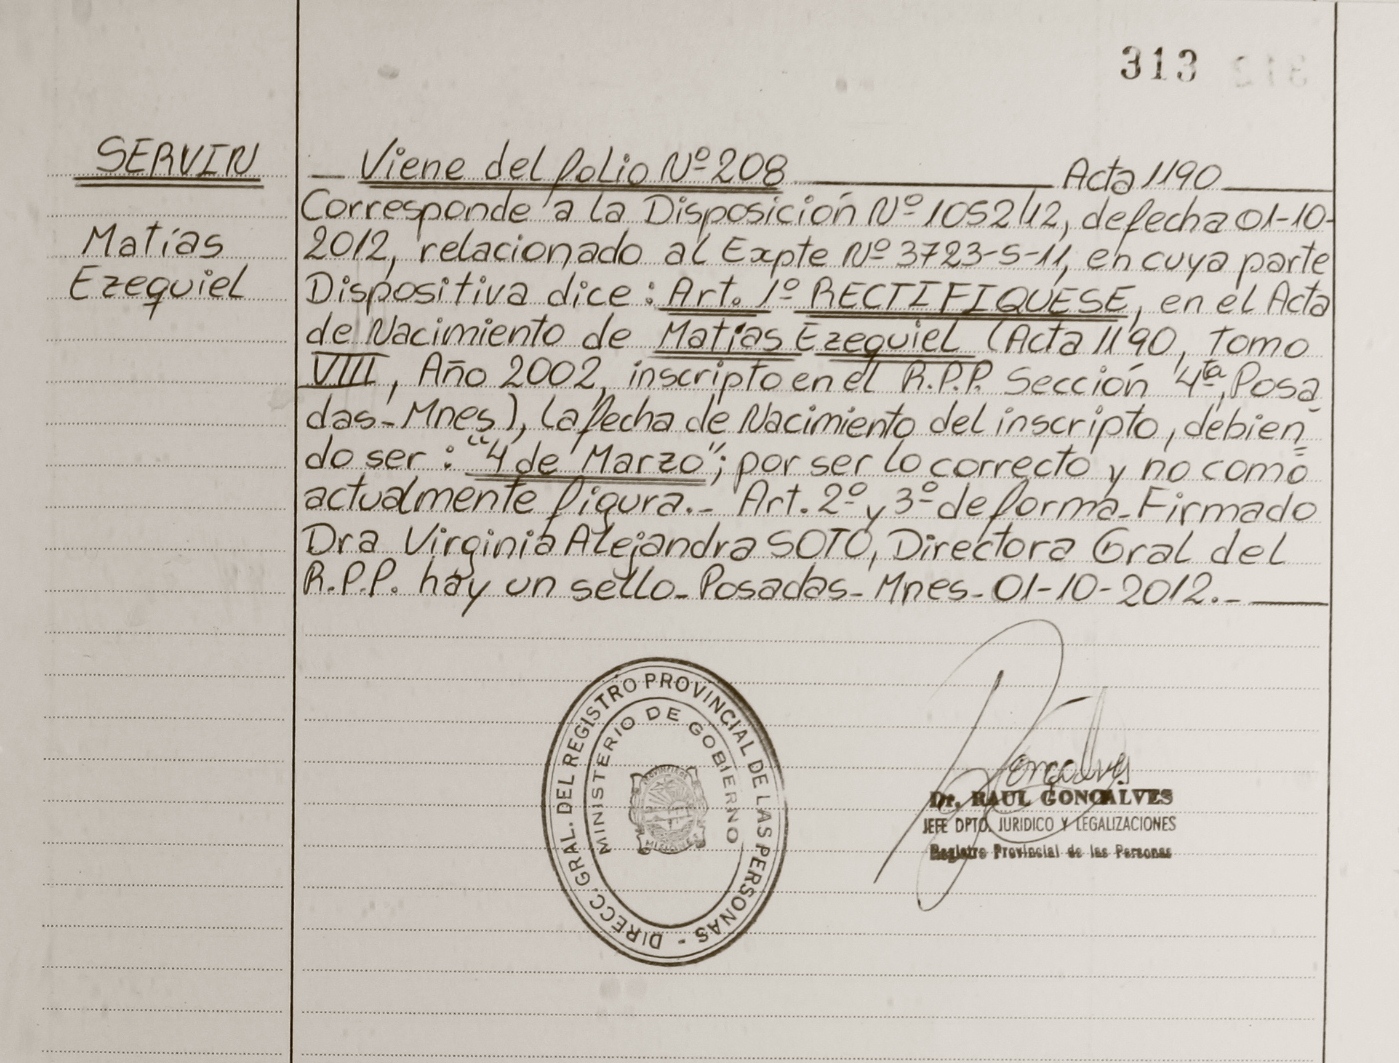 313
SERVIN
Matías
Ezequiel
Viene del folio Nº 208 Acta 1190
Corresponde a la Disposición Nº 1052/12, de fecha 01-10-
2012, relacionado al Expte Nº 3723-S-11, en cuya parte
Dispositiva dice: Art. 1º RECTIFIQUESE, en el Acta
de Nacimiento de Matías Ezequiel (Acta 1190, Tomo
VIII, Año 2002, inscripto en el R.P.P. Sección 4ta, Posa
das-Mnes), la fecha de Nacimiento del inscripto, debien
do ser: "4 de Marzo"; por ser lo correcto y no como
actualmente figura.- Art. 2º y 3º de forma-Firmado
Dra Virginia Alejandra SOTO, Directora Gral del
R.P.P. hay un sello-Posadas-Mnes-01-10-2012.-
DIRECC. GRAL. DEL REGISTRO PROVINCIAL DE LAS PERSONAS -
MINISTERIO DE GOBIERNO
Gonçalves
Dr. RAUL GONCALVES
JEFE DPTO. JURIDICO Y LEGALIZACIONES
Registro Provincial de las Personas